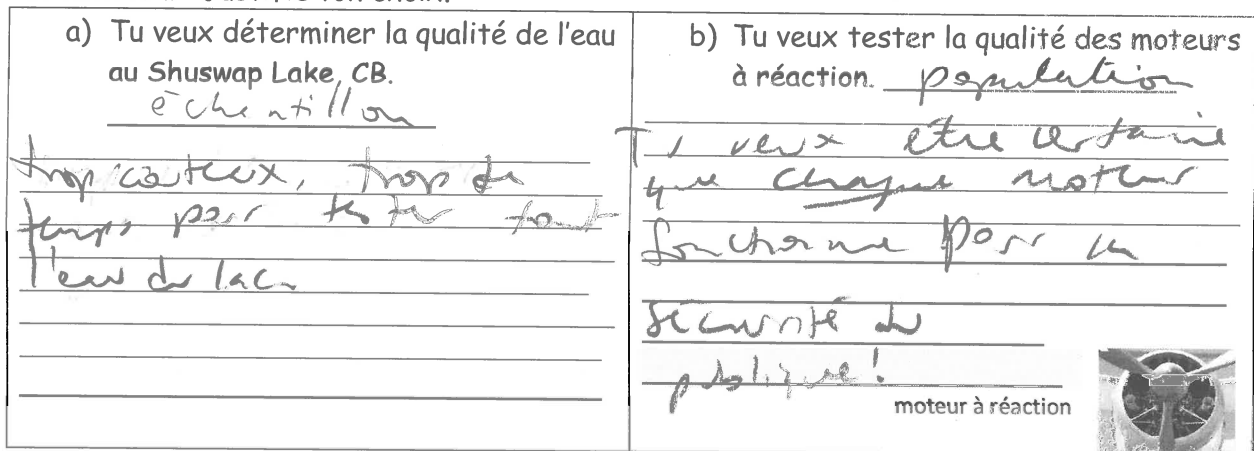 a) Tu veux déterminer la qualité de l'eau
au Shuswap Lake, CB.
échantillon
trop couteux, trop de
temps pour tester tout
l'eau du lac.
b) Tu veux tester la qualité des moteurs
à réaction. population
Tu veux etre certaine
que chaque moteur
fonctionne pour la
sécurité du
publique!
moteur à réaction